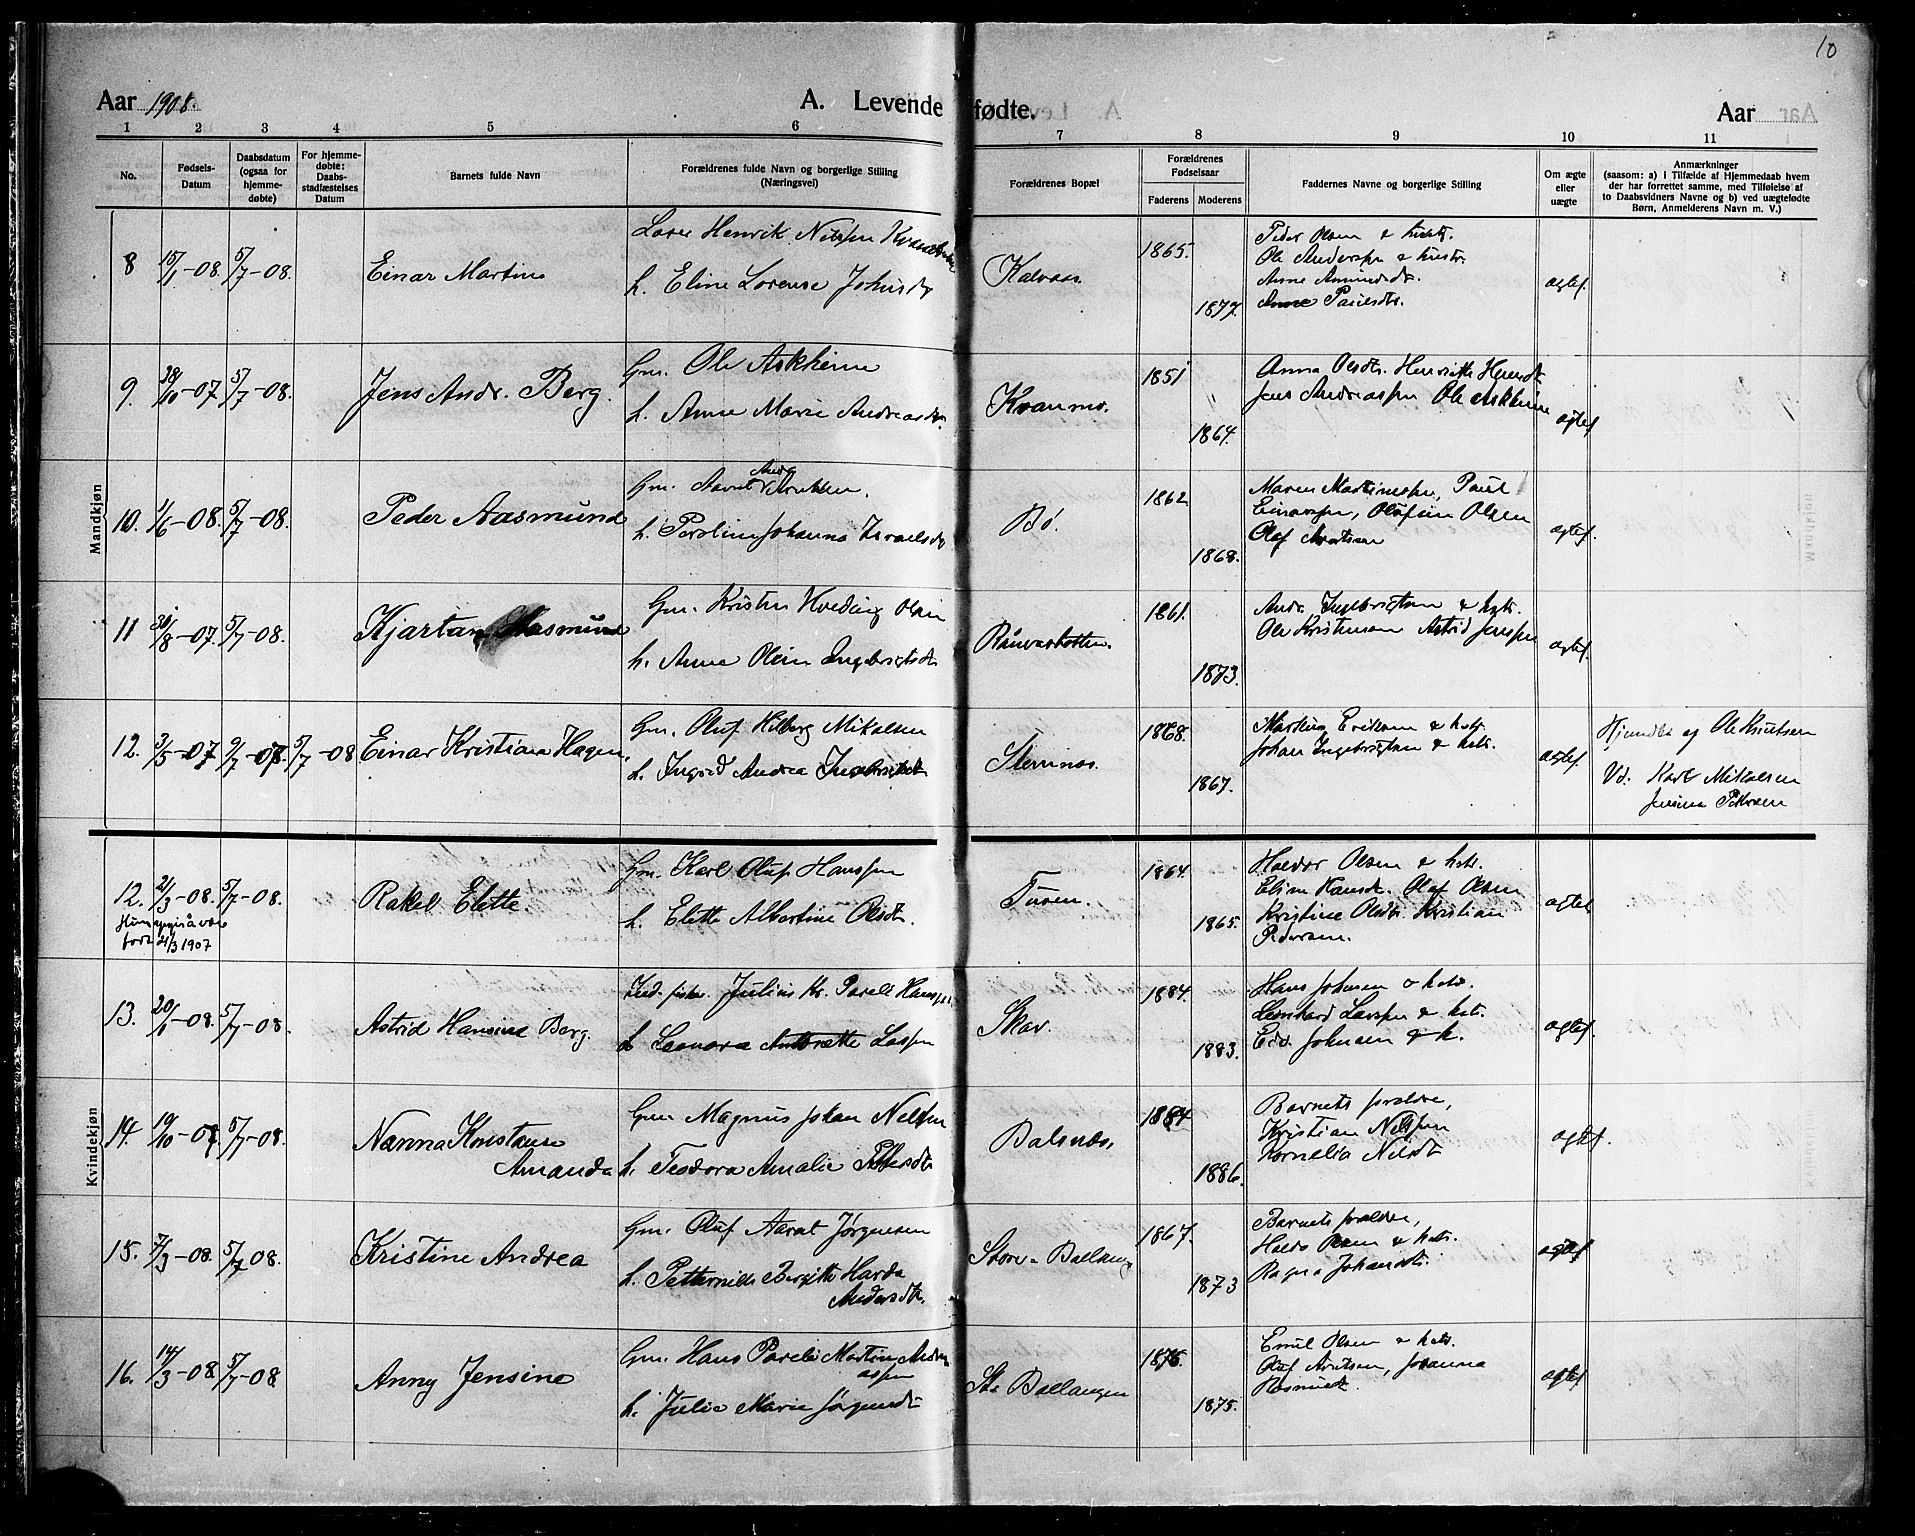 10
Aar 1908.
A. Levende fødte.
Aar
1 2 3 4 5 6 7 8 9 10 11
No.
Fødsels-
Datum
Daabsdatum
(ogsaa for
hjemme-
døbte)
For hjemme-
døbte:
Daabs-
stadfæstelses
Datum
Barnets fulde Navn
Forældrenes fulde Navn og borgerlige Stilling
(Næringsvei)
Forældrenes Bopæl
Forældrenes
Fødselsaar
Faderens Moderens
Faddernes Navne og borgerlige Stilling
Om ægte
eller
uægte
Anmærkninger
(saasom: a) i Tilfælde af Hjemmedaab hvem
der har forrettet samme, med Tilføielse af
to Daabsvidners Navne og b) ved uægtefødte
Børn, Anmelderens Navn m. V.)
Mandkjøn
8 15/1-08 5/7-08. Einar Martin
Henrik Nilssen
h. Eline Lorense Johnsdr
Kalvaas.
1865.
1877.
Peder Olsen & hustr.
Ole Anderssen & hustr.
Anne
Anne Paulsdtr.
ægtef.
9. 28/10-07 5/7-08. Jens Andr. Berg.
Gm. Ole Askheim
h. Anne Marie Andreasdr.
Kvannes.
1851
1864.
Anna Olsdtr. Henriette
Jens Andreassen Ole Askheim
ægtef
10. 1/6-08. 5/7-08. Peder Aasmund
Gm.
Andr
h. Johanna Israelsdr
Bø.
1862
1868.
Maren Martinessen, Paul
Einarssen, Olufine Olsen
Olaf Arntsen
ægtef.
11 31/8-07. 5/7-08. Kjartan Aasmund
Gm. Kristen Kveding Olsen
h. Anne Olein Ingebrigtsdr
1861.
1873.
Andr. Ingebrigtsen & hstr.
Ole Kristensen Astrid Jenssen
ægtef.
12. 3/5-07 9/7-07. 5/7-08 Einar Kristian Hagen.
Gm. Oluf Hilberg Mikalsen
h. Ingrid Andrea Ingebrigtsdr
Sternnes.
1868.
1867.
Martin Eriksen & hstr.
Johan Ingebrigtsen & hstr.
ægtef.
Hjemdbt. og Ole Knutsen
Vd. Karl Mikalsen
Jensine Pettersen
Kvindekjøn
12. 21/3-08. 5/7-08. Rakel Elette.
født 21/3 1907
Gm. Karl Oluf Hanssen
h. Elette Albertine Olsdtr.
1864.
1865.
Haldor Olsen & hstr.
Eline Hansdr. Olaf Olsen
Kristine Olsdtr. Kristian
Pedersen.
ægtef.
13. 20/1-08. 5/7-08. Astrid Hansine Berg.
Ind. fisker. Julius Kr. Pareli Hanssen
h Leonora Antonette Lassen
Skar.
1884.
1883.
Hans Johnsen & hstr.
Lenhard Larssen & hstr.
Edv. Johnsen & h.
ægtef.
14. 19/10-07 5/7-08. Nanna Konstanse
Amanda
Gm Magnus Johan Nilssen
h. Teodora Amalie Pettersdtr
Balsnes.
1884
1886.
Barnets forældre,
Kristian Nilssen
Kornelia Nilsdtr
ægtef.
15. 7/3-08. 5/7 08. Kristine Andrea
Gm. Oluf Aarnt Jørgensen
h. Petternille Bergitte Harda
Andersdtr.
Store-Ballang
1867.
1873
Barnets forældre,
Haldor Olsen & hstr.
Ragna Johansdtr.
ægtef
16. 14/3-08 5/7-08. Anny Jensine
Gm. Hans Pareli Martin Andre
assen
h. Julie Marie Jørgensdtr
St. Ballangen
1876.
1875.
Emil Olsen & hstr.
Oluf Arntsen, Johanna
Rasmusdtr.
ægtef